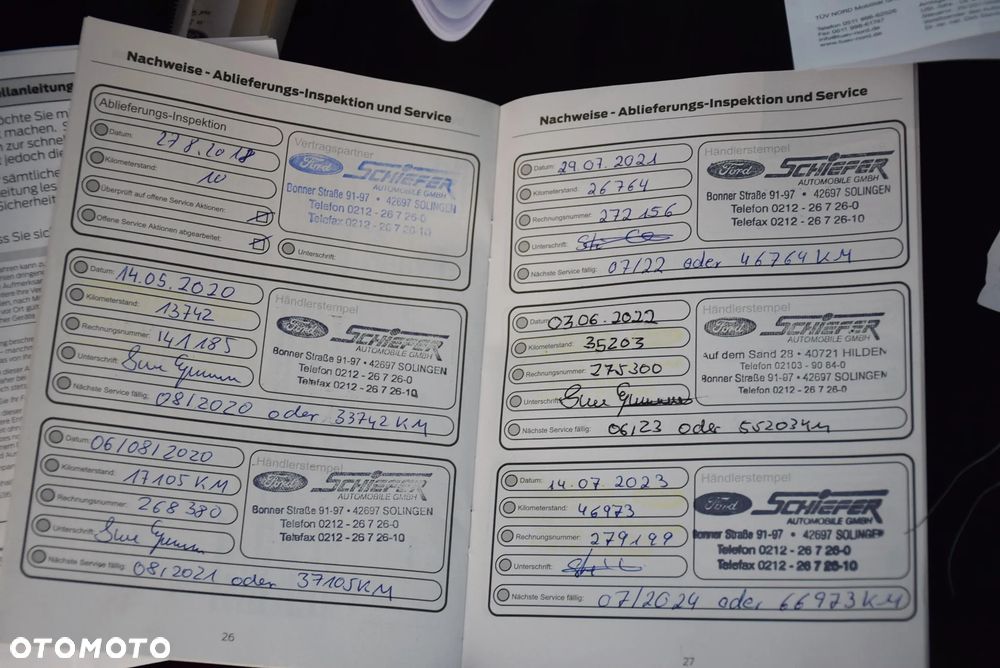 TÜV NORD Mobilität
Telefon 0511 998-62526
Fax 0511 998-61747
info@tuev-nord.de
www.tuev-nord.de
Nachweise - Ablieferungs-Inspektion und Service
Ablieferungs-Inspektion
Datum: 27 8.2018
Kilometerstand: 10
Überprüft auf offene Service Aktionen:
Offene Service Aktionen abgearbeitet:
Vertragspartner
Ford SCHIEFER
AUTOMOBILE GMBH
Bonner Straße 91-97 • 42697 SOLINGEN
Telefon 0212 - 26 7 26-0
Telefax 0212 - 26 7 26-10
Unterschrift:
Datum: 14.05.2020
Kilometerstand: 13742
Rechnungsnummer: 141185
Unterschrift:
Nächste Service fällig: 08/2020 oder 33742 KM
Händlerstempel
Ford SCHIEFER
AUTOMOBILE GMBH
Bonner Straße 91-97 • 42697 SOLINGEN
Telefon 0212 - 26 7 26-0
Telefax 0212 - 26 7 26-10
Datum: 06/08/2020
Kilometerstand: 17105 KM
Rechnungsnummer: 268380
Unterschrift:
Nächste Service fällig: 08/2021 oder 37105 KM
Händlerstempel
Ford SCHIEFER
AUTOMOBILE GMBH
Bonner Straße 91-97 • 42697 SOLINGEN
Telefon 0212 - 26 7 26-0
Telefax 0212 - 26 7 26-10
26
Nachweise - Ablieferungs-Inspektion und Service
Datum: 29.07.2021
Kilometerstand: 26764
Rechnungsnummer: 272156
Unterschrift:
Nächste Service fällig: 07/22 oder 46764 KM
Händlerstempel
Ford SCHIEFER
AUTOMOBILE GMBH
Bonner Straße 91-97 • 42697 SOLINGEN
Telefon 0212 - 26 7 26-0
Telefax 0212 - 26 7 26-10
Datum: 03.06.2022
Kilometerstand: 35203
Rechnungsnummer: 275300
Unterschrift:
Nächste Service fällig: 06/23 oder 55203 KM
Händlerstempel
Ford SCHIEFER
AUTOMOBILE GMBH
Auf dem Sand 28 • 40721 HILDEN
Telefon 02103 - 90 84-0
Bonner Straße 91-97 • 42697 SOLINGEN
Telefon 0212 - 26 7 26-0
Telefax 0212 - 26 7 26-10
Datum: 14.07.2023
Kilometerstand: 46973
Rechnungsnummer: 279199
Unterschrift:
Nächste Service fällig: 07/2024 oder 66973 KM
Händlerstempel
Ford SCHIEFER
AUTOMOBILE GMBH
Bonner Straße 91-97 • 42697 SOLINGEN
Telefon 0212 - 26 7 26-0
Telefax 0212 - 26 7 26-10
27
OTOMOTO